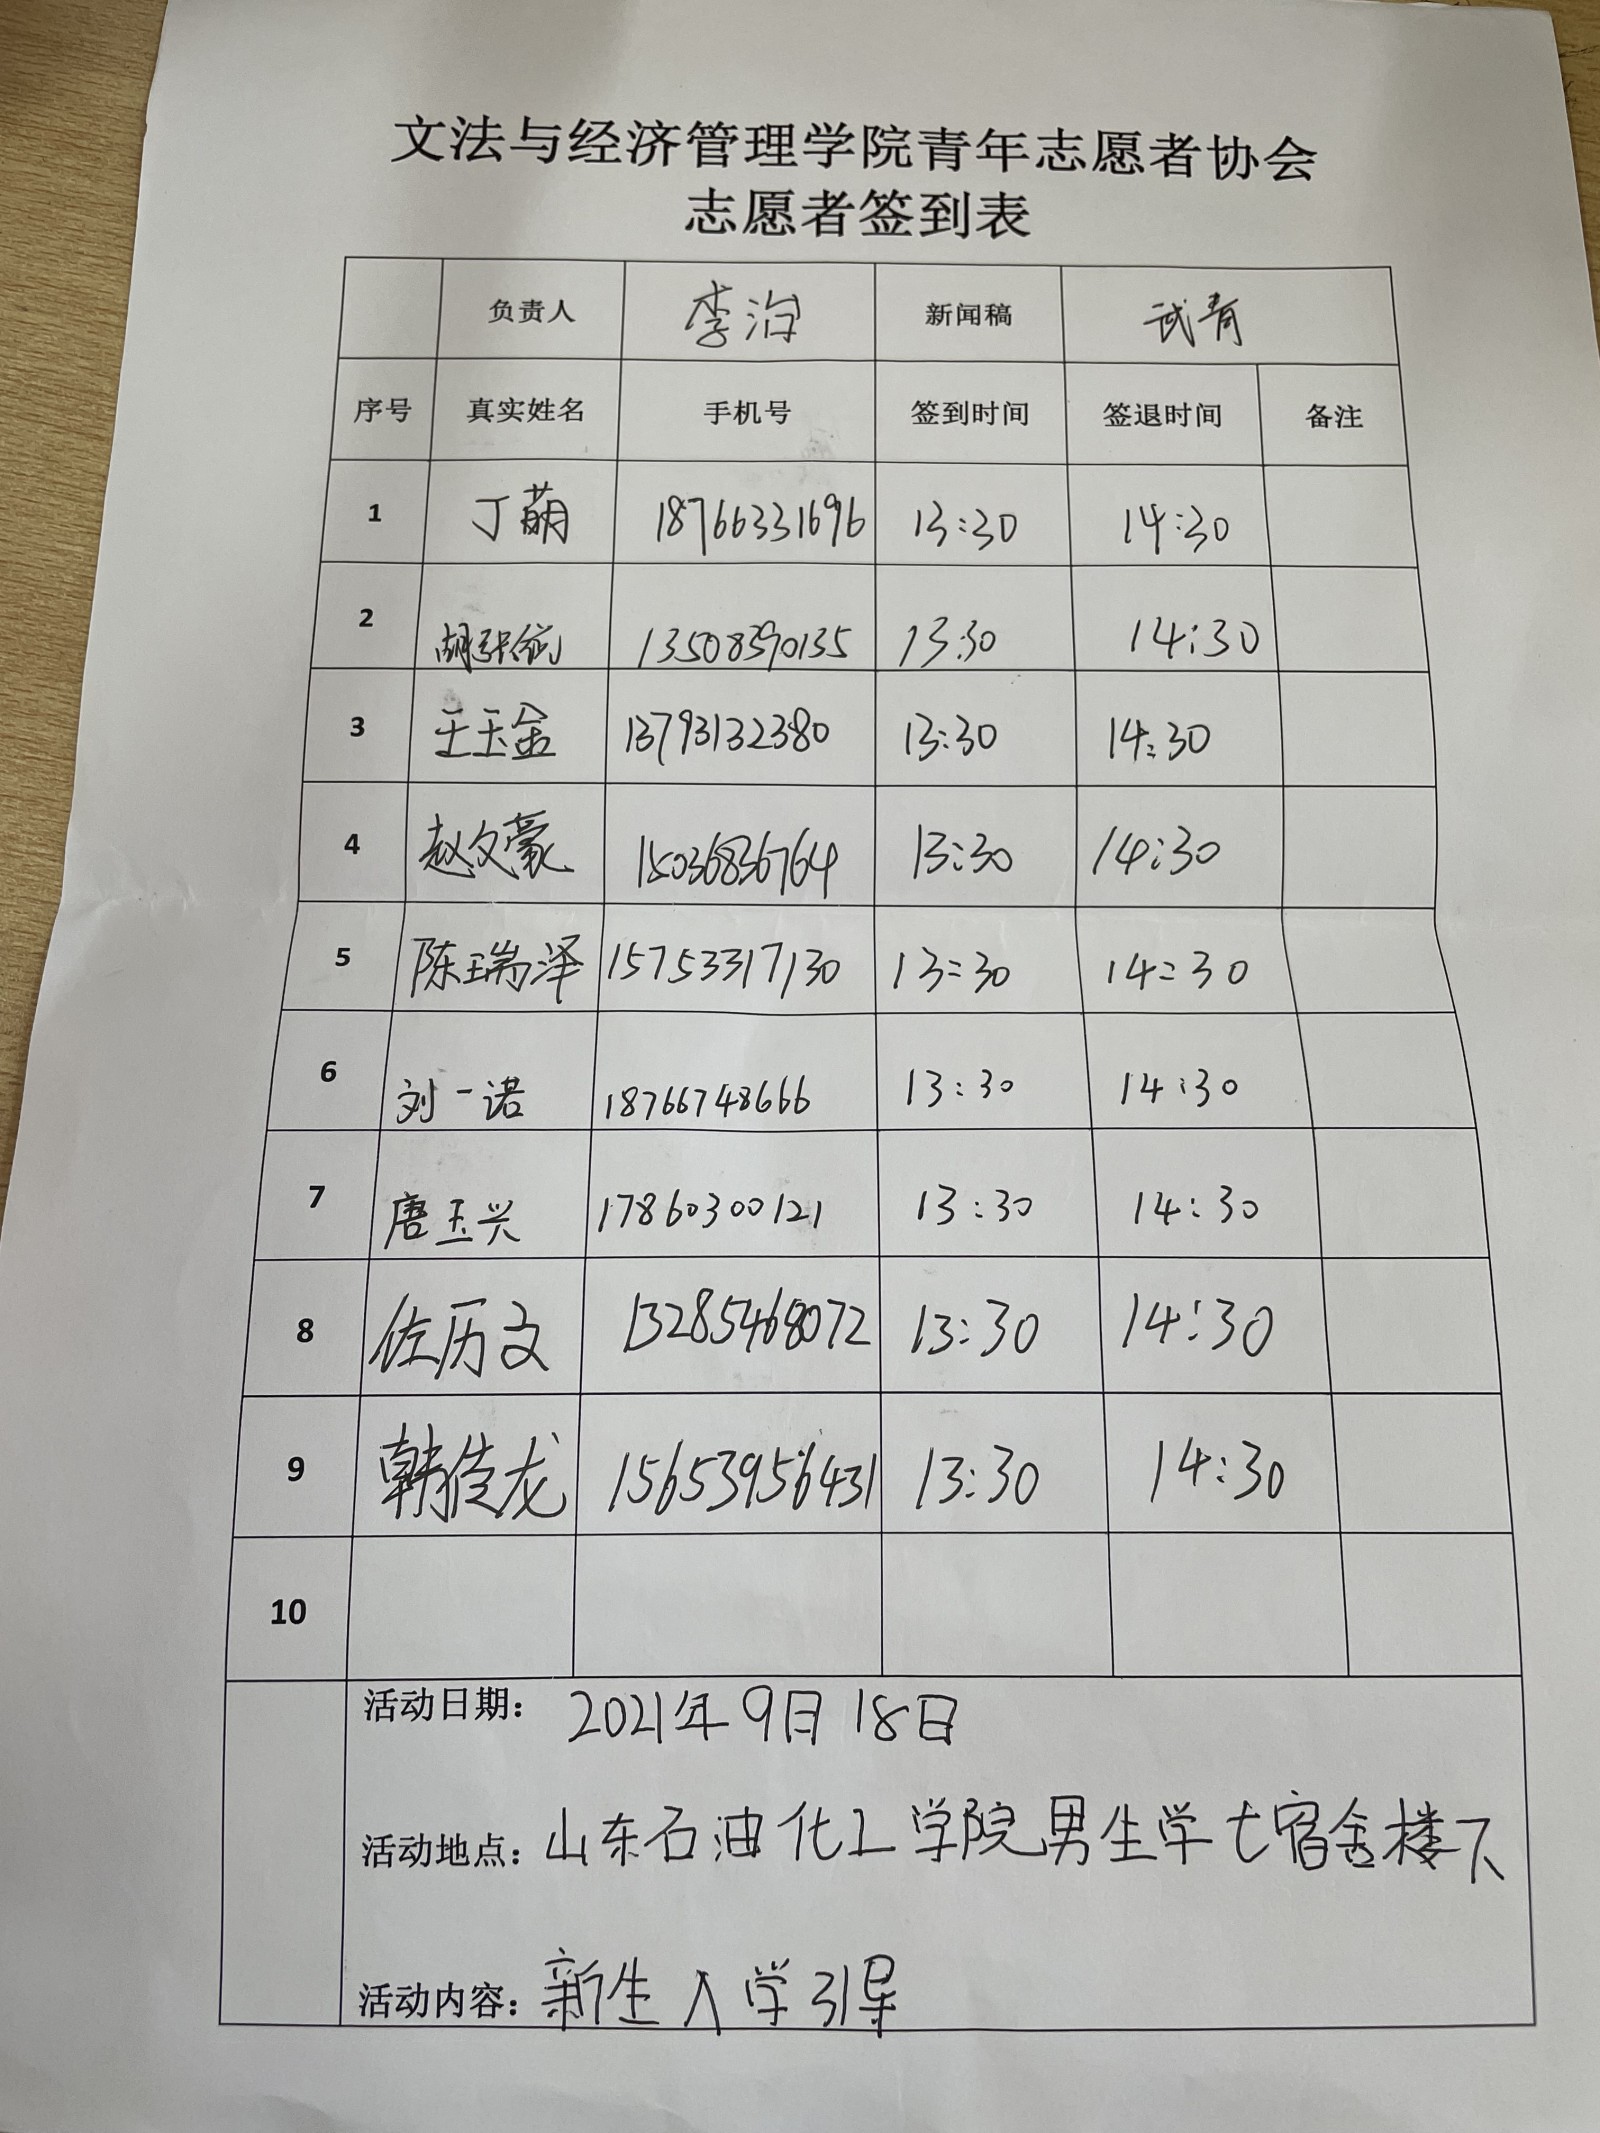 文法与经济管理学院青年志愿者协会
志愿者签到表
负责人 李治 新闻稿 武青
序号 真实姓名 手机号 签到时间 签退时间 备注
1 丁萌 18766331696 13:30 14:30
2 13508390135 13:30 14:30
3 王玉金 13793132380 13:30 14:30
4 赵文豪 15036836764 13:30 14:30
5 陈瑞泽 15753317130 13:30 14:30
6 刘一诺 18766748666 13:30 14:30
7 唐玉兴 17860300121 13:30 14:30
8 佐历文 13285468072 13:30 14:30
9 韩佳龙 15653956431 13:30 14:30
10
活动日期: 2021年9月18日
活动地点: 山东石油化工学院男生学七宿舍楼下
活动内容: 新生入学引导